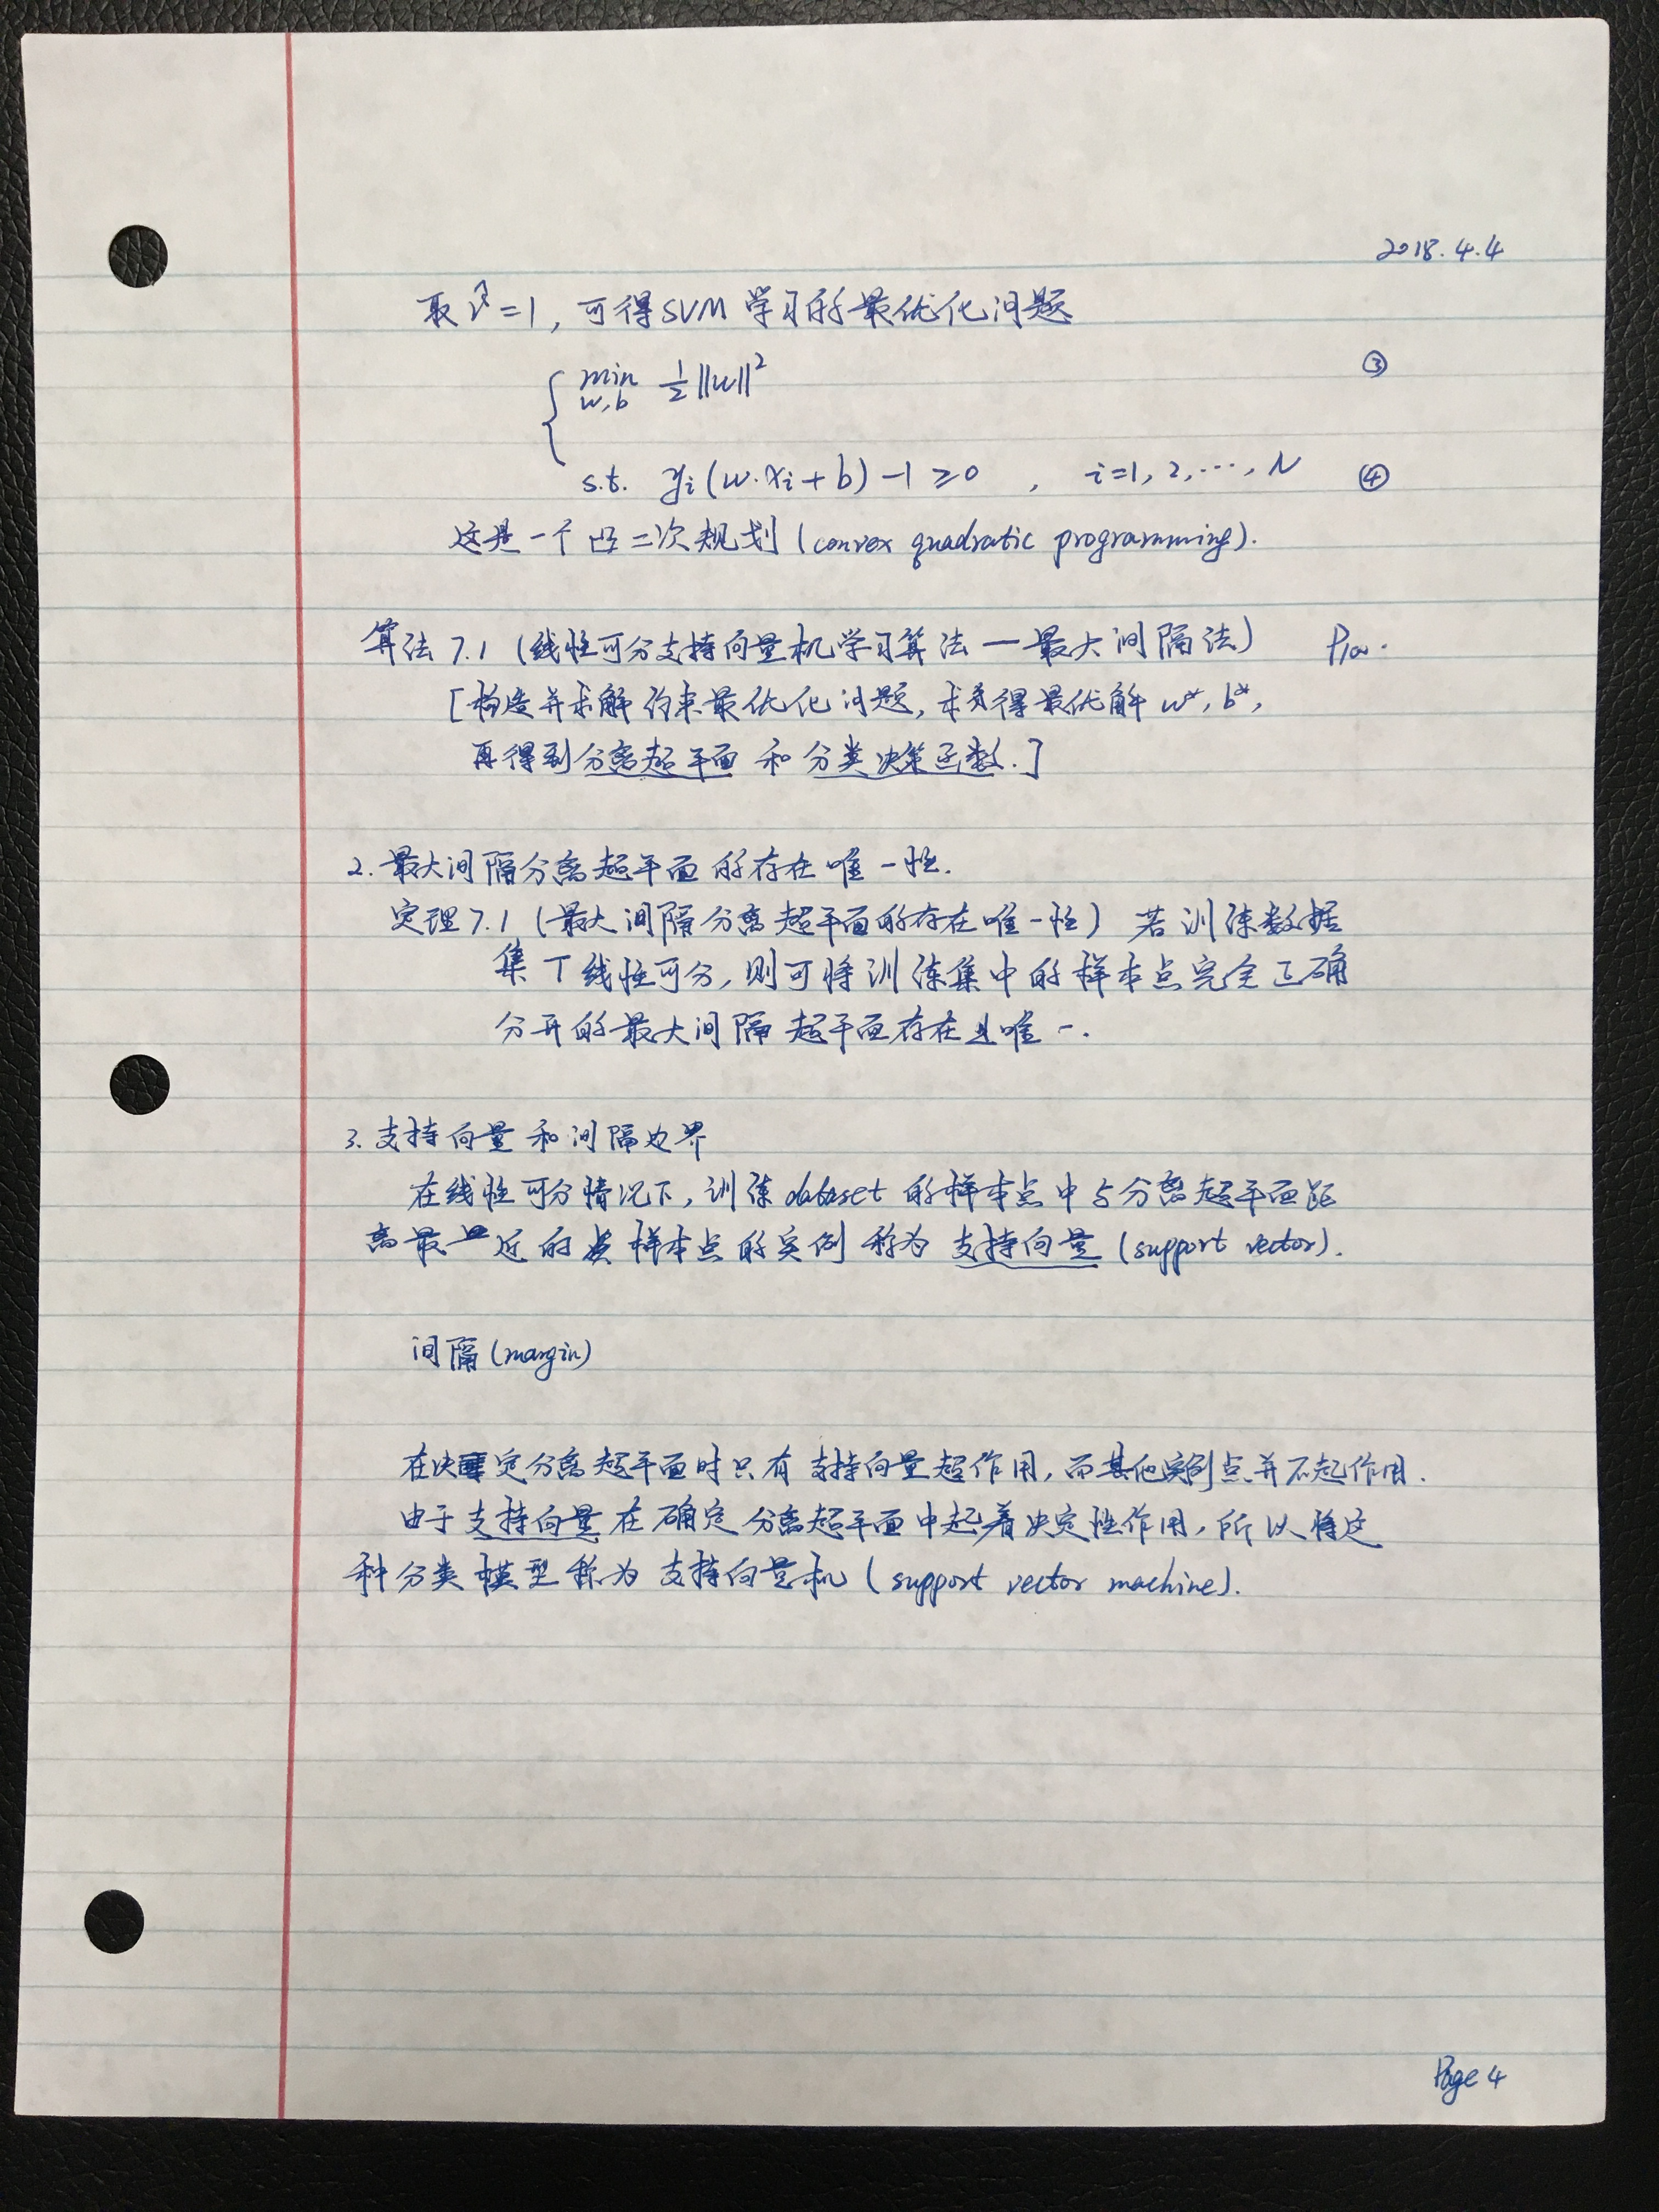 2018.4.4
取 r̂=1, 可得SVM 学习的最优化问题
{ min 1/2 ||w||² ③
w,b
s.t. yi(w·xi+b)-1≥0 , i=1, 2, ···, N ④
这是一个凸二次规划 (convex quadratic programming).
算法 7.1 (线性可分支持向量机学习算法—最大间隔法) P100.
[构造并求解约束最优化问题, 求得最优解 w*, b*,
再得到分离超平面 和 分类决策函数.]
2. 最大间隔分离超平面的存在唯一性.
定理7.1 (最大间隔分离超平面的存在唯一性) 若训练数据
集 T 线性可分, 则可将训练集中的样本点完全正确
分开的最大间隔超平面存在且唯一.
3. 支持向量和间隔边界
在线性可分情况下, 训练dataset 的样本点中与分离超平面距
离最近的样本点的实例称为 支持向量 (support vector).
间隔 (margin)
在决定分离超平面时只有支持向量超作用, 而其他实例点并不起作用.
由于支持向量在确定分离超平面中起着决定性作用, 所以将这
种分类模型称为支持向量机 (support vector machine).
Page 4